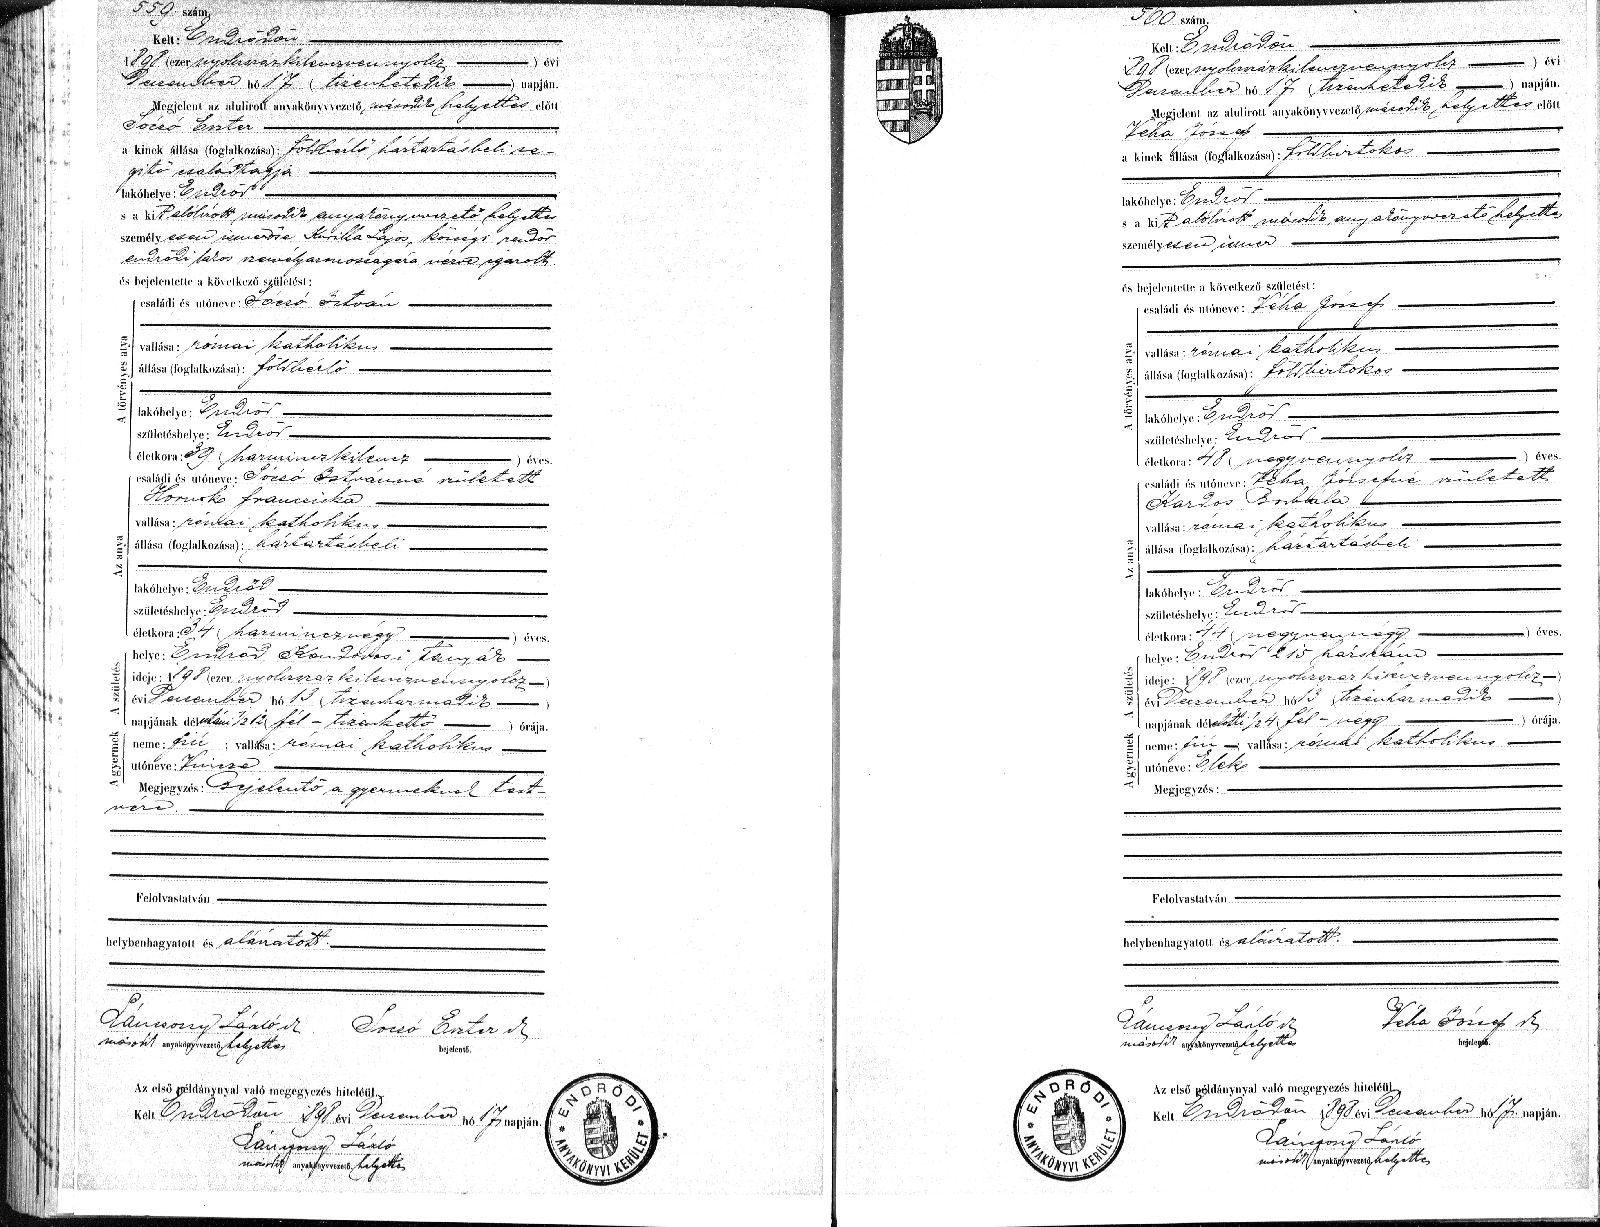 559 szám.
Kelt: Endrődön
1898 (ezer nyolcszázkilenczvennyolcz ) évi
December hó 17 ( tizenhetedik ) napján.
Megjelent az alulirott anyakönyvvezető második helyettes előtt
Sócsó Eszter
a kinek állása (foglalkozása): földbérlő háztartásbeli se-
gitő családtagja
lakóhelye: Endrőd
s a kit alólirott második anyakönyvvezető helyettes
személyesen ismerőse Lajos, községi rendőr
endrődi lakos
és bejelentette a következő születést:
A törvényes atya
családi és utóneve: Sócsó István
vallása: római katholikus
állása (foglalkozása): földbérlő
lakóhelye: Endrőd
születéshelye: Endrőd
életkora: 39 ( harminczkilencz ) éves.
Az anya
családi és utóneve: Sócsó Istvánné született
Hornok Francziska
vallása: római katholikus
állása (foglalkozása): háztartásbeli
lakóhelye: Endrőd
születéshelye: Endrőd
életkora: 34 ( harmincznégy ) éves.
A születés
helye: Endrőd Kondorosi tanyák
ideje: 1898 (ezer nyolcszázkilenczvennyolcz )
évi December hó 13 ( tizenharmadik )
napjának délutáni 1/2 12 ( fél-tizenkettő ) órája.
A gyermek
neme: fiú ; vallása: római katholikus
utóneve: Vincze
Megjegyzés: Bejelentő a gyermeknek test-
vére.
Felolvastatván
helybenhagyatott és aláiratott.
László sk Sócsó Eszter sk
második anyakönyvvezető helyettes bejelentő.
Az első példánynyal való megegyezés hiteléül.
Kelt Endrődön 1898 évi December hó 17 napján.
László
második anyakönyvvezető helyettes
ENDRŐDI ANYAKÖNYVI KERÜLET
560 szám.
Kelt: Endrődön
1898 (ezer nyolcszázkilenczvennyolcz ) évi
December hó 17 ( tizenhetedik ) napján.
Megjelent az alulirott anyakönyvvezető második helyettes előtt
Véha József
a kinek állása (foglalkozása): földbirtokos
lakóhelye: Endrőd
s a kit alólirott második anyakönyvvezető helyettes
személyesen ismer
és bejelentette a következő születést:
A törvényes atya
családi és utóneve: Véha József
vallása: római katholikus
állása (foglalkozása): földbirtokos
lakóhelye: Endrőd
születéshelye: Endrőd
életkora: 48 ( negyvennyolcz ) éves.
Az anya
családi és utóneve: Véha Józsefné született
Kardos Borbála
vallása: római katholikus
állása (foglalkozása): háztartásbeli
lakóhelye: Endrőd
születéshelye: Endrőd
életkora: 44 ( negyvennégy ) éves.
A születés
helye: Endrőd 215 házszám
ideje: 1898 (ezer nyolcszázkilenczvennyolcz )
évi December hó 13 ( tizenharmadik )
napjának délelőtti 1/2 4 ( fél-négy ) órája.
A gyermek
neme: fiú ; vallása: római katholikus
utóneve: Elek
Megjegyzés:
Felolvastatván
helybenhagyatott és aláiratott.
László sk Véha József sk
második anyakönyvvezető helyettes bejelentő.
Az első példánynyal való megegyezés hiteléül.
Kelt Endrődön 1898 évi December hó 17 napján.
László
második anyakönyvvezető helyettes
ENDRŐDI ANYAKÖNYVI KERÜLET